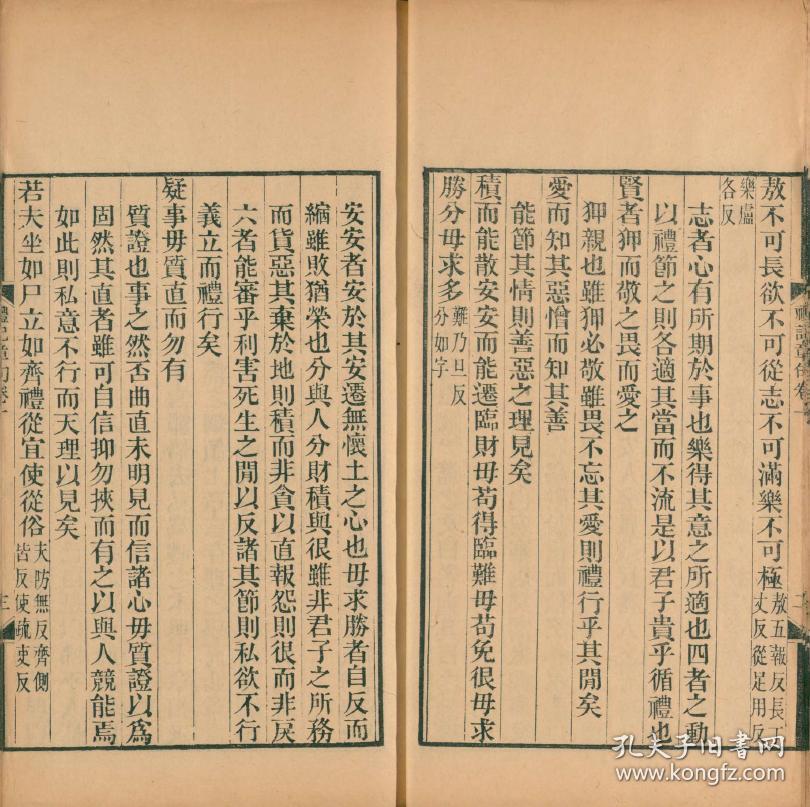 敖不可長欲不可從志不可滿樂不可極敖五報反長丁丈反從足用反
樂盧各反
志者心有所期於事也樂得其意之所適也四者之動
以禮節之則各適其當而不流是以君子貴乎循禮也
賢者狎而敬之畏而愛之
狎親也雖狎必敬雖畏不忘其愛則禮行乎其閒矣
愛而知其惡憎而知其善
能節其情則善惡之理見矣
積而能散安安而能遷臨財毋苟得臨難毋苟免很毋求
勝分毋求多難乃旦反分如字
禮記章句卷一
二
安安者安於其安遷無懷土之心也毋求勝者自反而
縮雖敗猶榮也分與人分財積與很雖非君子之所務
而貨惡其棄於地則積而非貪以直報怨則很而非戾
六者能審乎利害死生之閒以反諸其節則私欲不行
義立而禮行矣
疑事毋質直而勿有
質證也事之然否曲直未明見而信諸心毋質證以爲
固然其直者雖可自信抑勿挾而有之以與人競能焉
如此則私意不行而天理以見矣
若夫坐如尸立如齊禮從宜使從俗夫防無反齊側皆反使疏吏反
禮記章句卷一
三
孔夫子旧书网
www.kongfz.com